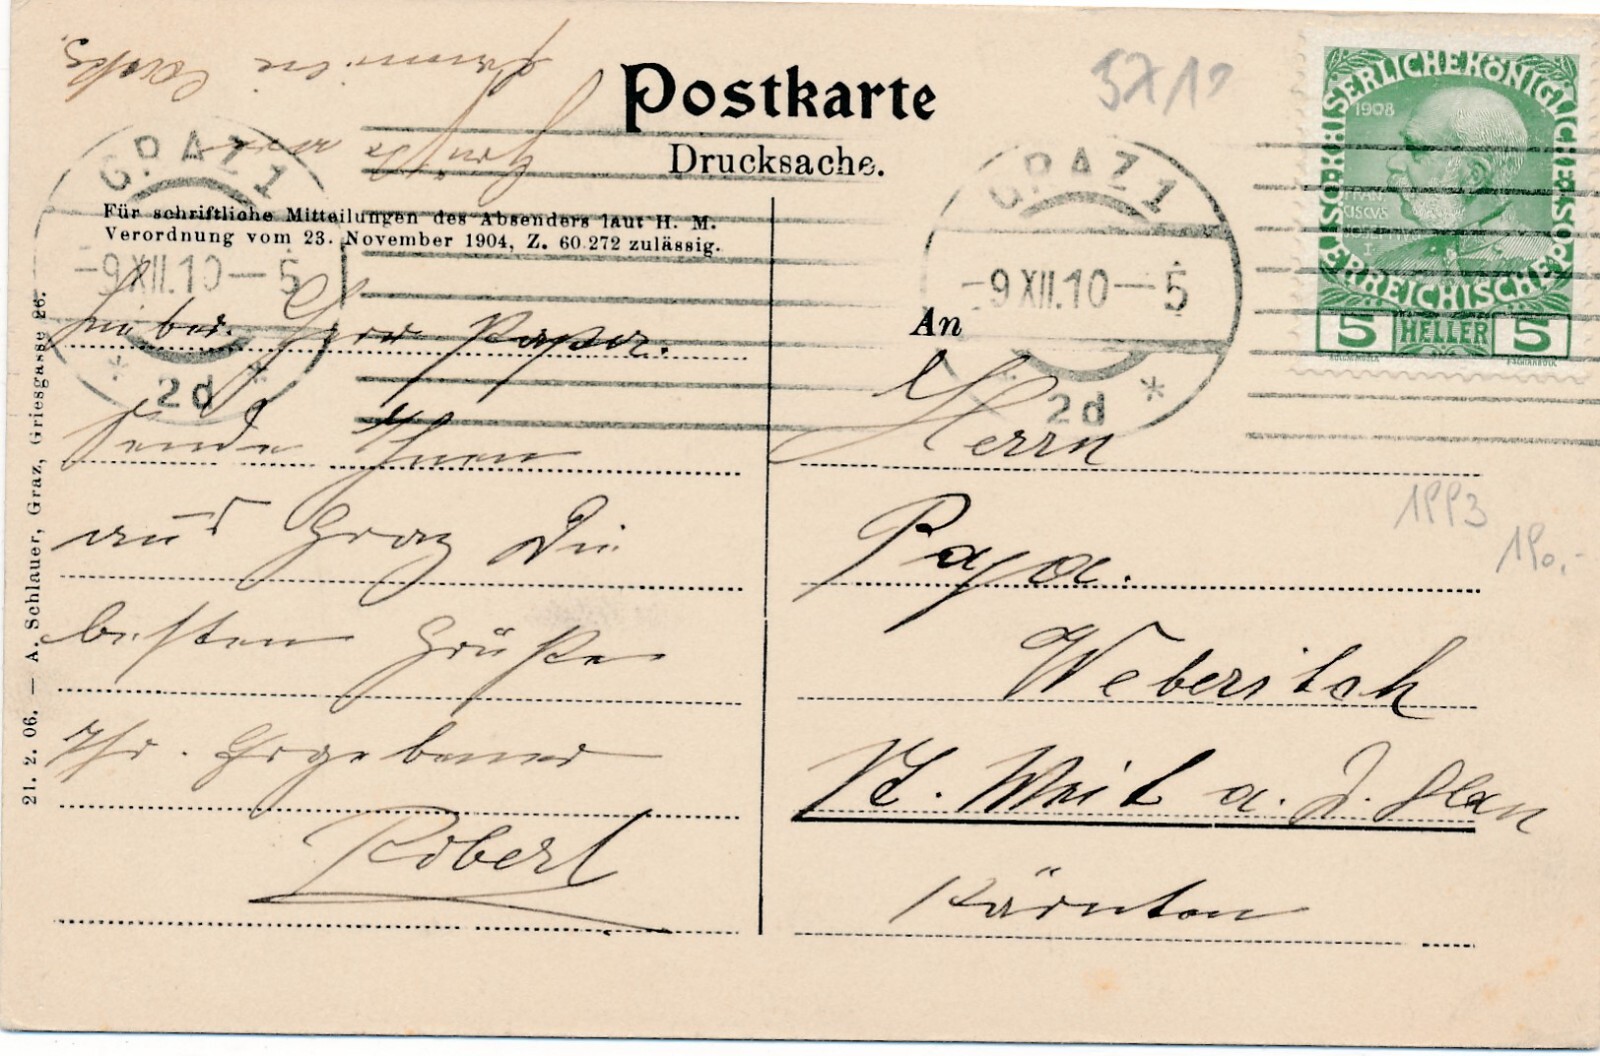 Postkarte
Drucksache.
Für schriftliche Mitteilungen des Absenders laut H. M.
Verordnung vom 23. November 1904, Z. 60.272 zulässig.
GRAZ 1
-9 XII.10-5
* 2d *
Lieber Herr Papa.
Sende Ihnen
aus Graz Die
besten Grüße
Ihr. Ergebener
Robert
21. 2. 06. — A. Schlauer, Graz, Griesgasse 26.
An
GRAZ 1
-9 XII.10-5
* 2d *
KAISERLICHE KÖNIGLICHE ÖSTERREICHISCHE POST
1908
FRAN
CISCVS
IOSEPHVS
I
5 HELLER 5
Herrn
Papa.
Weberitsch
St. Veit a. d. Glan
Kärnten
1993
190,-